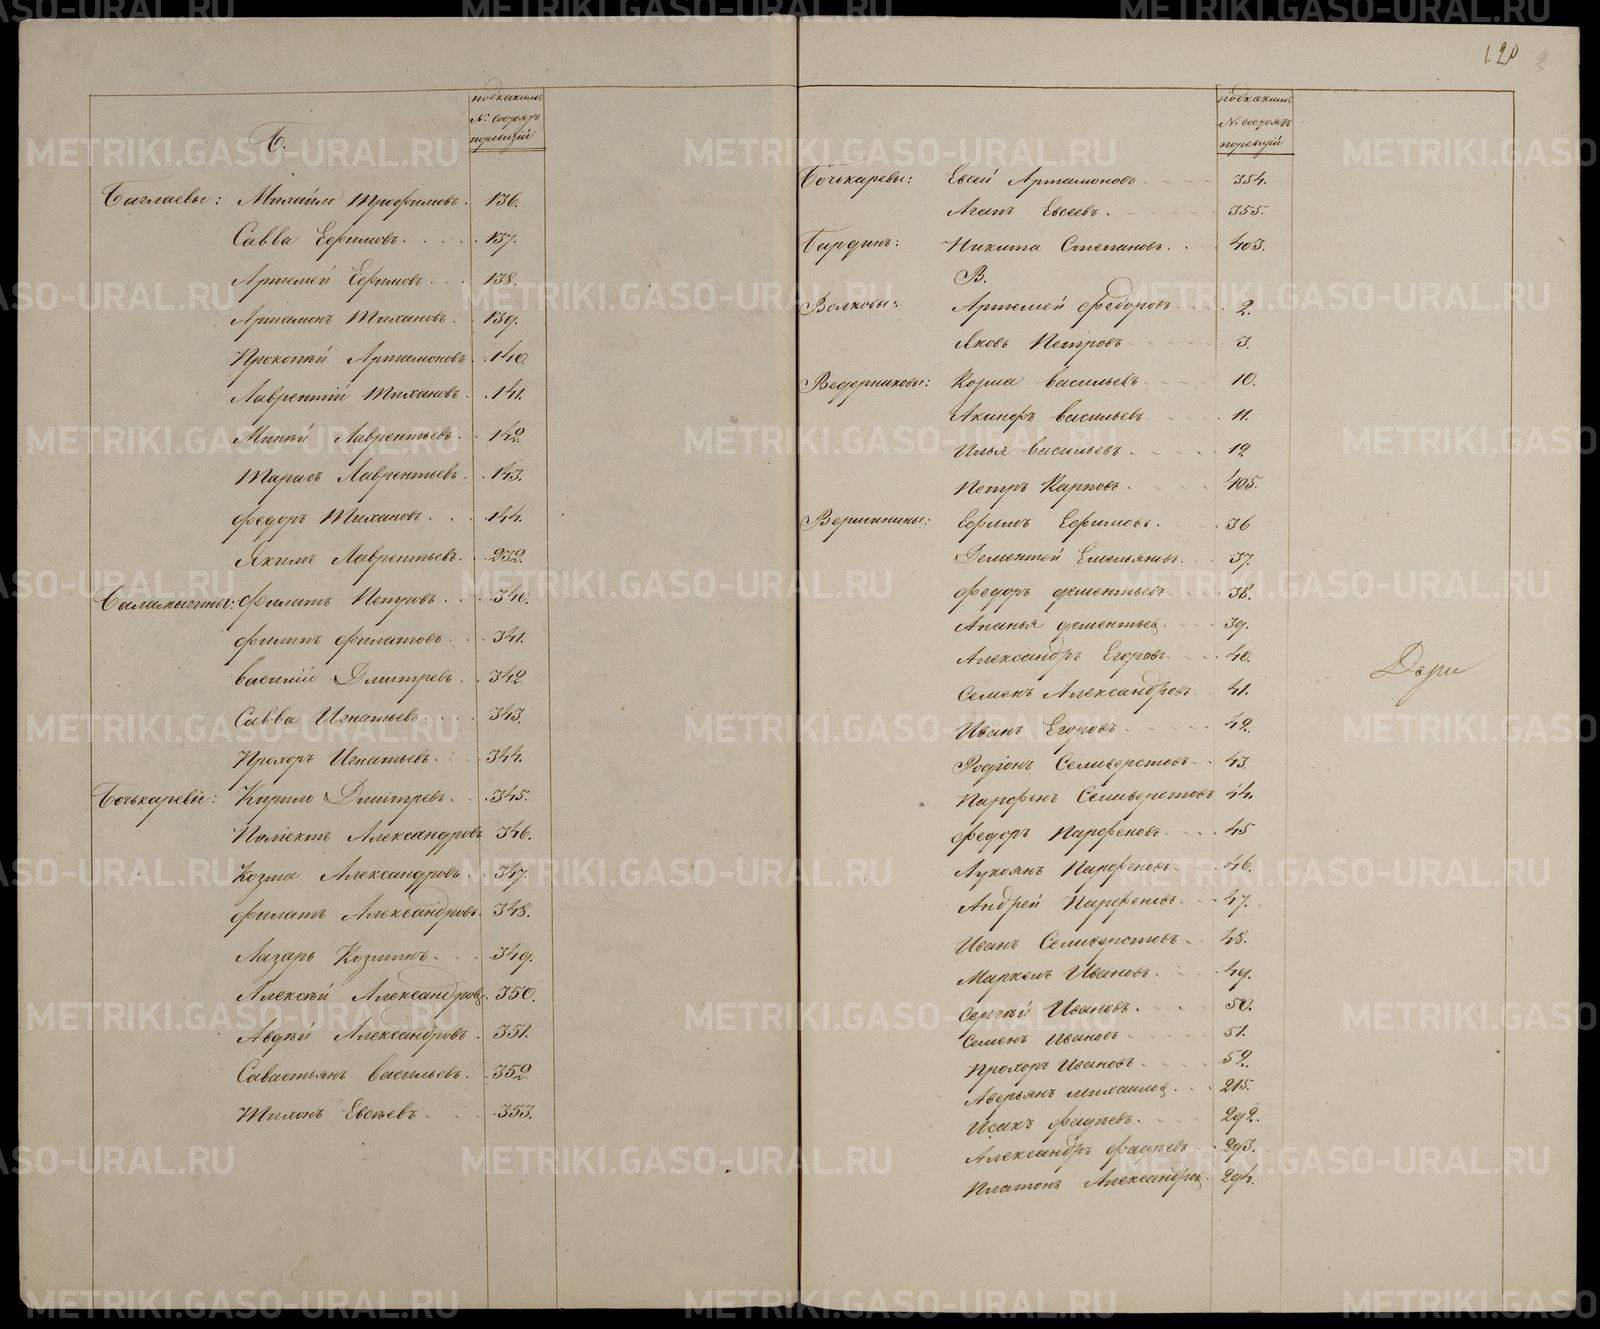 подъ какимъ
№ состоятъ
по ревизіи
Б.
Баглаевы: Михайло Трофимовъ. 136.
Савва Ефимовъ. 137.
Артемей Ефимовъ. 138.
Артамонъ Тихановъ. 139.
Прокопѣй Артамоновъ. 140.
Лаврентій Тихановъ. 141.
Минѣй Лаврентьевъ. 142.
Тарасъ Лаврентьевъ. 143.
Федоръ Тихановъ. 144.
Якимъ Лаврентьевъ. 232.
Баламыгины: Филатъ Петровъ. 340.
Филипъ Филатовъ. 341.
Василій Дмитревъ. 342.
Савва Игнатьевъ. 343.
Прохоръ Игнатьевъ. 344.
Бочькаревы: Кирило Дмитревъ. 345.
Полиектъ Александровъ 346.
Козма Александровъ. 347.
Филатъ Александровъ. 348.
Лазарь Козминъ. 349.
Алексѣй Александровъ. 350.
Авдѣй Александровъ. 351.
Савастьянъ Васильевъ. 352
Тихонъ Евсѣевъ. 353.
120
подъ какимъ
№ состоятъ
по ревизіи
Бочькаревы: Евсей Артамоновъ 354.
Агапъ Евсеевъ. 355.
Бардинъ: Никита Степановъ. 403.
В.
Волковы: Артемей Федоровъ 2.
Яковъ Петровъ 3.
Ведерниковы: Козма Васильевъ 10.
Акинфъ Васильевъ 11.
Илья Васильевъ. 12
Петръ Карповъ. 405.
Вершинины: Ефимъ Ефимовъ. 36
Дементей Емельяновъ. 37.
Федоръ Дементьевъ. 38.
Ананья Дементьев. 39.
Александръ Егоровъ. 40.
Семенъ Александровъ. 41.
Иванъ Егоровъ. 42.
Родіонъ Селиверстовъ. 43.
Парфенъ Селиверстовъ 44.
Федоръ Парфеновъ. 45
Лукоянъ Парфеновъ. 46.
Андрей Парфеновъ. 47.
Иванъ Селиверстовъ. 48.
Маркелъ Ивановъ. 49.
Сергѣй Ивановъ. 50.
Семенъ Ивановъ 51.
Прохоръ Ивановъ 52.
Аверьянъ Михаилов. 215.
Исакъ Фадѣевъ. 292.
Александръ Фадѣевъ 293.
Платонъ Александров. 294.
METRIKI.GASO-URAL.RU